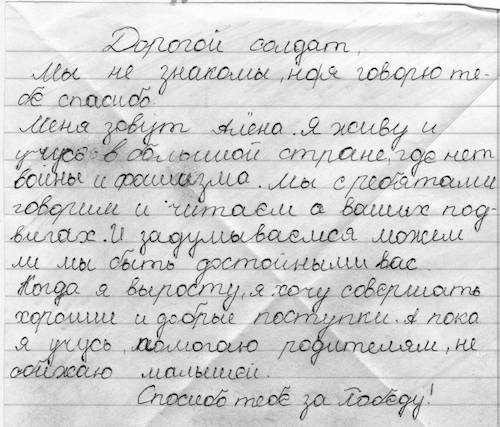 Дорогой солдат,
Мы не знакомы, но я говорю те-
бе спасибо.
Меня зовут Алёна. Я живу и
учусь в большой стране, где нет
войны и фашизма. Мы с ребятами
говорим и читаем о ваших под-
вигах. И задумываемся можем
ли мы быть достойными вас.
Когда я вырасту, я хочу совершать
хорошие и добрые поступки. А пока
я учусь, помогаю родителям, не
обижаю малышей.
Спосибо тебе за Победу!